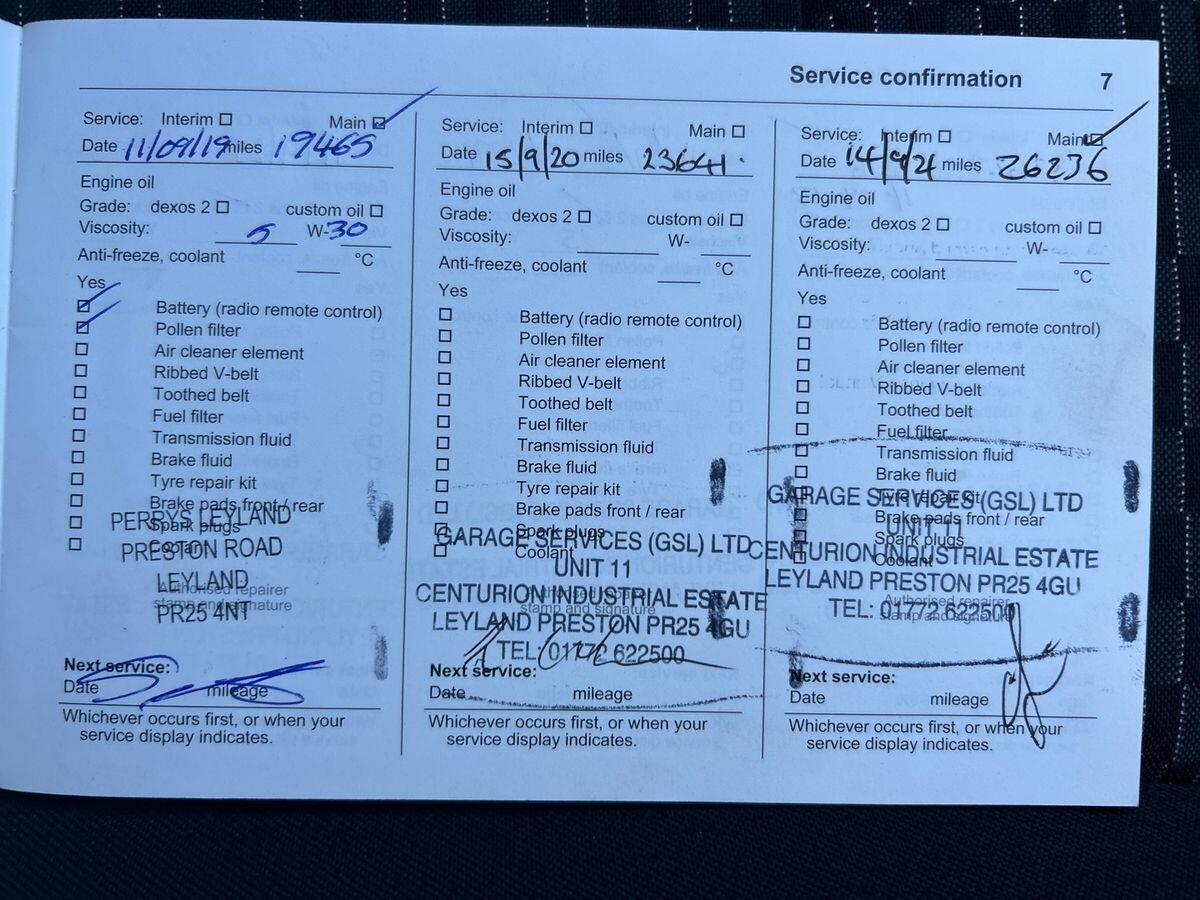 Service confirmation 7
Service: Interim Main
Date 11/09/19 miles 19465
Engine oil
Grade: dexos 2 custom oil
Viscosity: 5 W-30
Anti-freeze, coolant °C
Yes
Battery (radio remote control)
Pollen filter
Air cleaner element
Ribbed V-belt
Toothed belt
Fuel filter
Transmission fluid
Brake fluid
Tyre repair kit
Brake pads front / rear
Spark plugs
Coolant
PERRYS LEYLAND
PRESTON ROAD
LEYLAND
PR25 4NT
Authorised repairer
stamp and signature
Next service:
Date mileage
Whichever occurs first, or when your
service display indicates.
Service: Interim Main
Date 15/9/20 miles 23641.
Engine oil
Grade: dexos 2 custom oil
Viscosity: W-
Anti-freeze, coolant °C
Yes
Battery (radio remote control)
Pollen filter
Air cleaner element
Ribbed V-belt
Toothed belt
Fuel filter
Transmission fluid
Brake fluid
Tyre repair kit
Brake pads front / rear
Spark plugs
Coolant
GARAGE SERVICES (GSL) LTD
UNIT 11
CENTURION INDUSTRIAL ESTATE
LEYLAND PRESTON PR25 4GU
TEL: 01772 622500
Authorised repairer
stamp and signature
Next service:
Date mileage
Whichever occurs first, or when your
service display indicates.
Service: Interim Main
Date 14/9/21 miles 26236
Engine oil
Grade: dexos 2 custom oil
Viscosity: W-
Anti-freeze, coolant °C
Yes
Battery (radio remote control)
Pollen filter
Air cleaner element
Ribbed V-belt
Toothed belt
Fuel filter
Transmission fluid
Brake fluid
Tyre repair kit
Brake pads front / rear
Spark plugs
Coolant
GARAGE SERVICES (GSL) LTD
UNIT 11
CENTURION INDUSTRIAL ESTATE
LEYLAND PRESTON PR25 4GU
TEL: 01772 622500
Authorised repairer
stamp and signature
Next service:
Date mileage
Whichever occurs first, or when your
service display indicates.